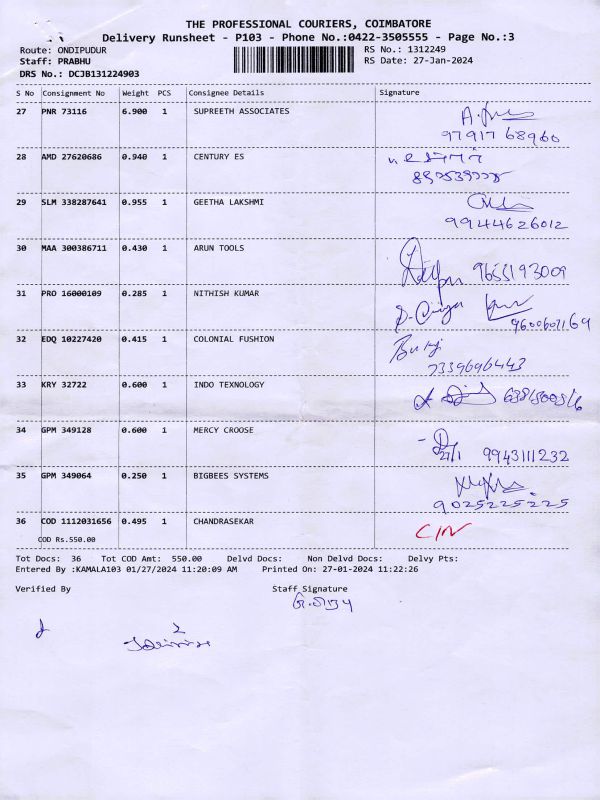 THE PROFESSIONAL COURIERS, COIMBATORE
Delivery Runsheet - P103 - Phone No.:0422-3505555 - Page No.:3
Route: ONDIPUDUR RS No.: 1312249
Staff: PRABHU RS Date: 27-Jan-2024
DRS No.: DCJB131224903
S No Consignment No Weight PCS Consignee Details Signature
27 PNR 73116 6.900 1 SUPREETH ASSOCIATES
97917 68960
28 AMD 27620686 0.940 1 CENTURY ES
29 SLM 338287641 0.955 1 GEETHA LAKSHMI
9944626012
30 MAA 300386711 0.430 1 ARUN TOOLS
9655193009
31 PRO 16000109 0.285 1 NITHISH KUMAR
9600607169
32 EDQ 10227420 0.415 1 COLONIAL FUSHION
7339696443
33 KRY 32722 0.600 1 INDO TEXNOLOGY
34 GPM 349128 0.600 1 MERCY CROOSE
27/1 9943111232
35 GPM 349064 0.250 1 BIGBEES SYSTEMS
9025225225
36 COD 1112031656 0.495 1 CHANDRASEKAR
COD Rs.550.00
Tot Docs: 36 Tot COD Amt: 550.00 Delvd Docs: Non Delvd Docs: Delvy Pts:
Entered By :KAMALA103 01/27/2024 11:20:09 AM Printed On: 27-01-2024 11:22:26
Verified By Staff Signature